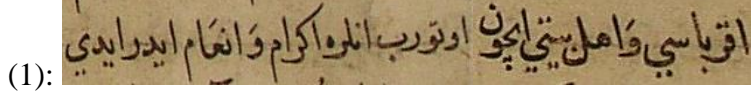 (1): اقرباسي وَاهل بيتي ايچون اوتورب انلره اكرام وَانعَام ايدرايدي